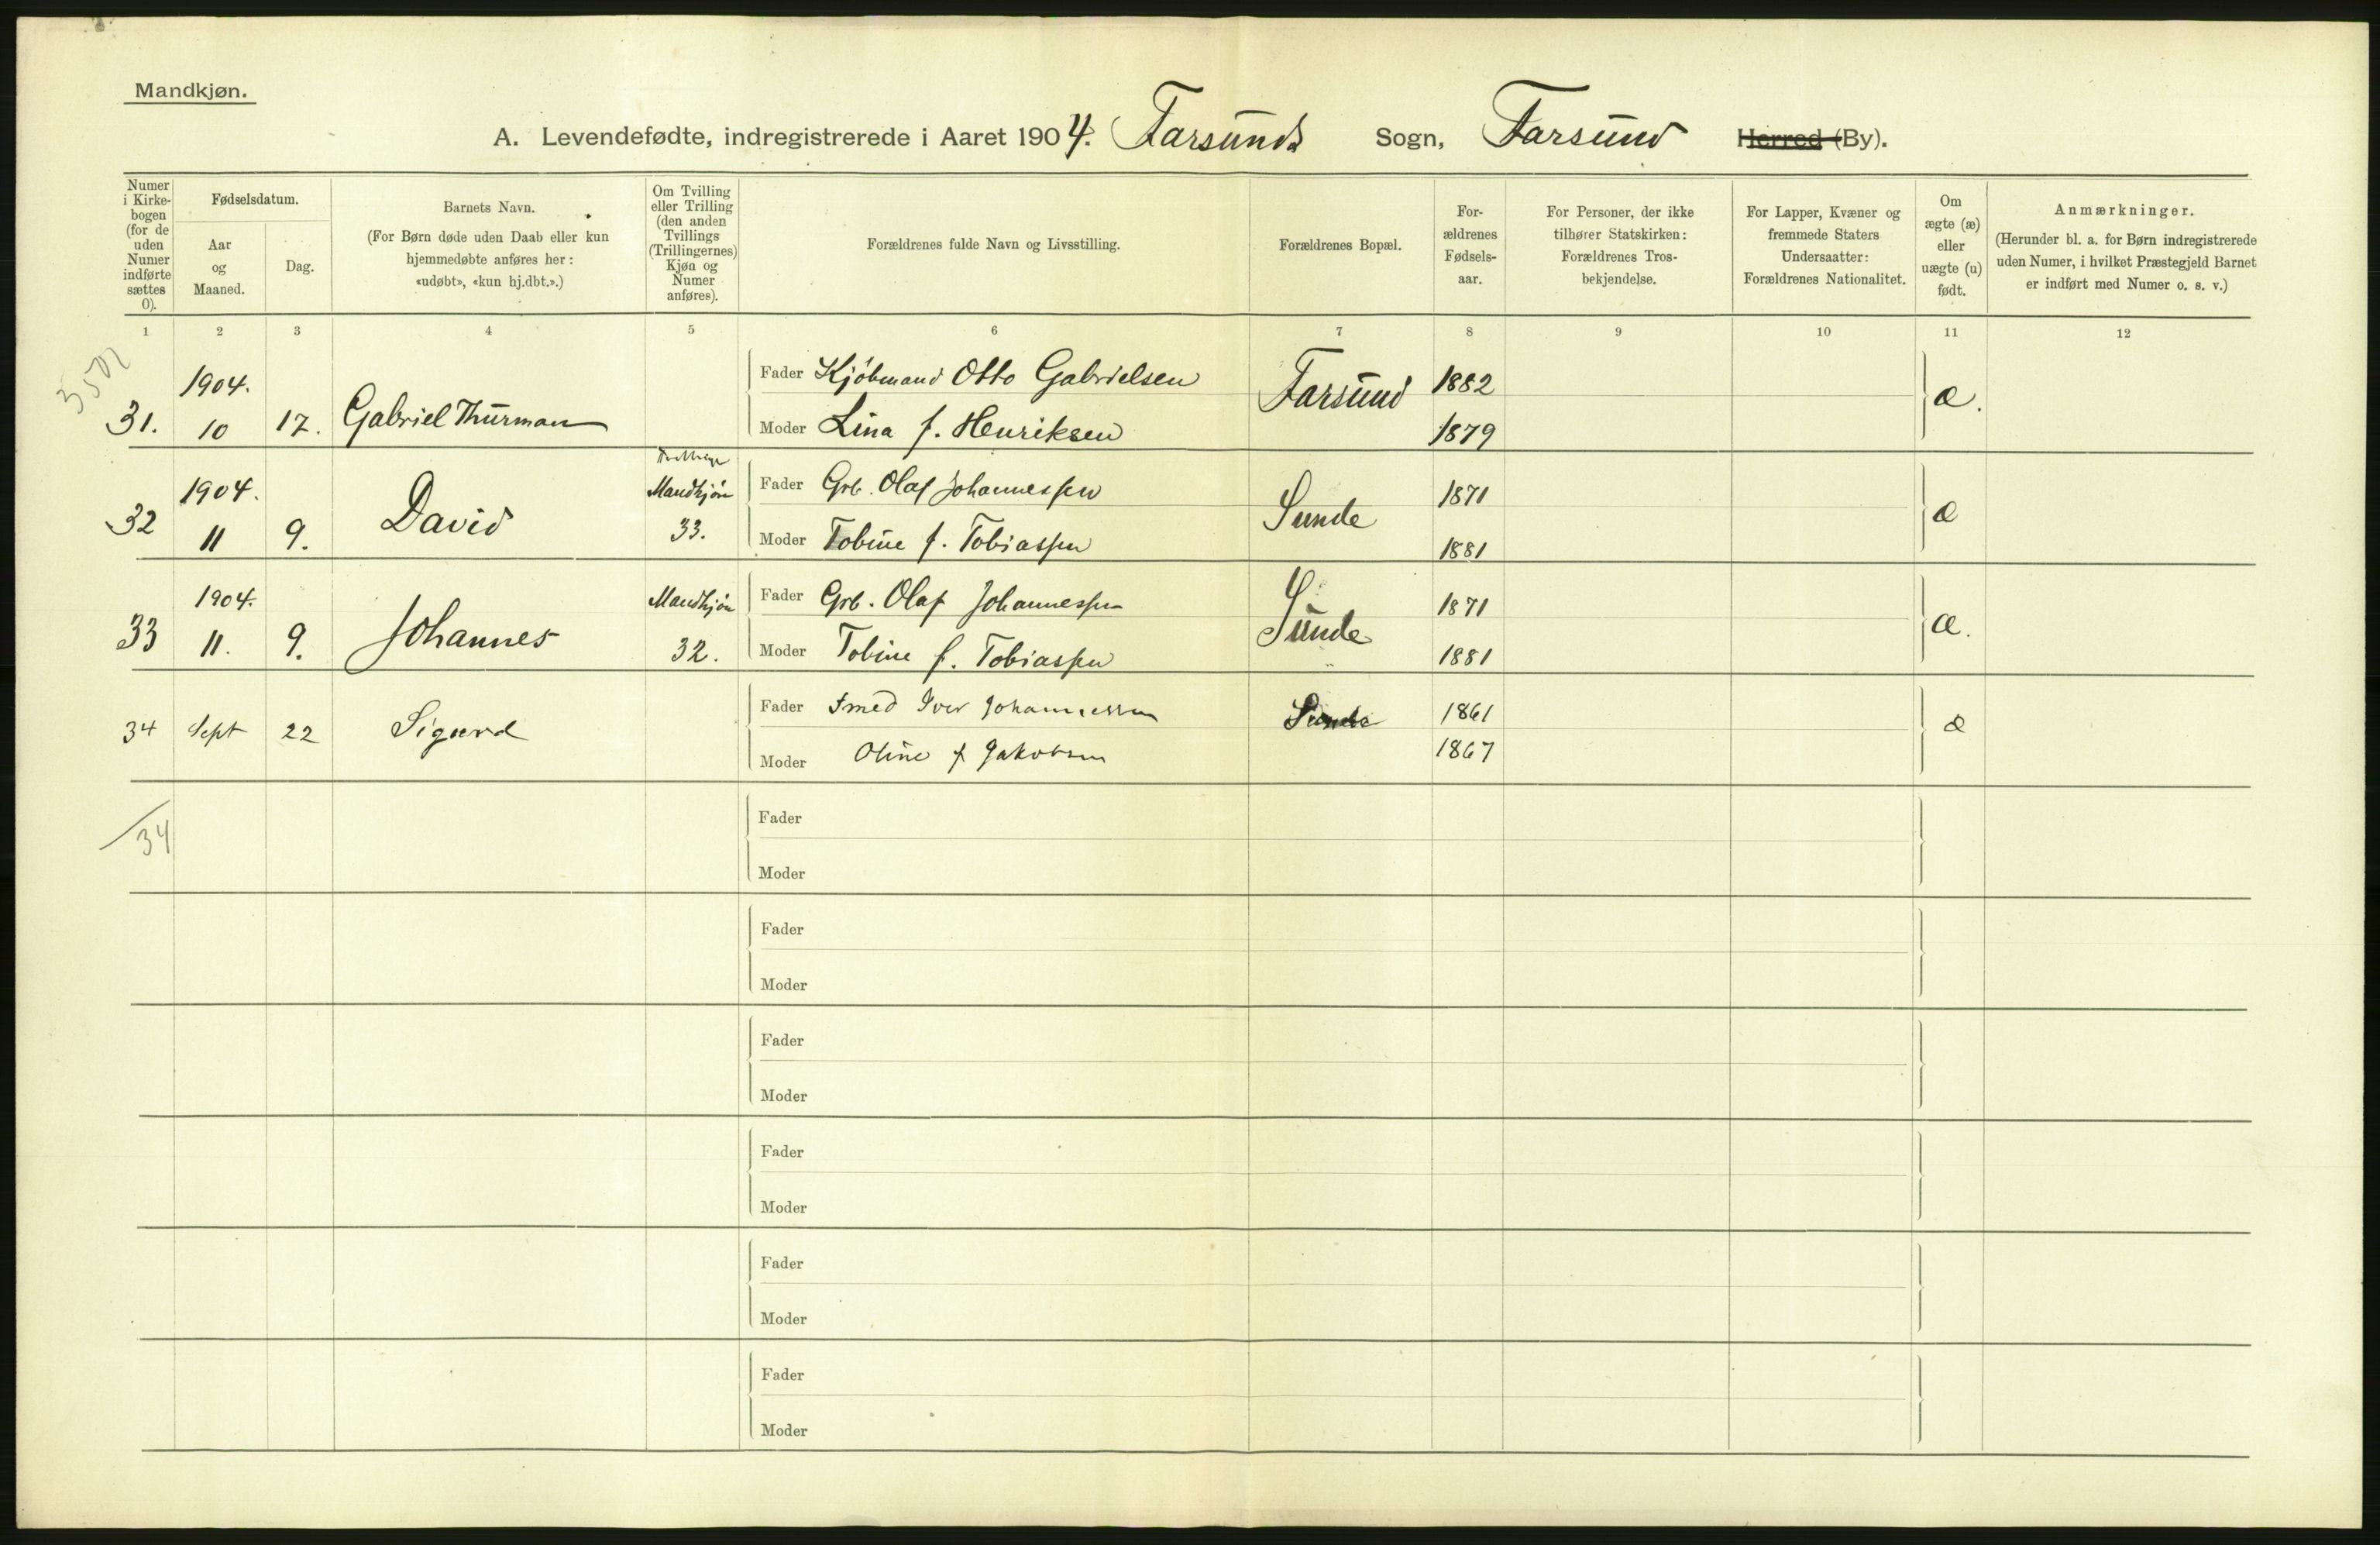 Mandkjøn.
A. Levendefødte, indregistrerede i Aaret 1904. Farsunds Sogn, Farsund Herred (By).
Numer i Kirkebogen (for de uden Numer indførte sættes 0).
Fødselsdatum.
Aar og Maaned.
Dag.
Barnets Navn.
(For Børn døde uden Daab eller kun hjemmedøbte anføres her: «udøbt», «kun hj.dbt.».)
Om Tvilling eller Trilling (den anden Tvillings (Trillingernes) Kjøn og Numer anføres).
Forældrenes fulde Navn og Livsstilling.
Forældrenes Bopæl.
Forældrenes Fødselsaar.
For Personer, der ikke tilhører Statskirken: Forældrenes Trosbekjendelse.
For Lapper, Kvæner og fremmede Staters Undersaatter: Forældrenes Nationalitet.
Om ægte (æ) eller uægte (u) født.
Anmærkninger.
(Herunder bl. a. for Børn indregistrerede uden Numer, i hvilket Præstegjeld Barnet er indført med Numer o. s. v.)
1 2 3 4 5 6 7 8 9 10 11 12
31. 1904. 10 17. Gabriel Thurman
Fader Kjøbmand Otto Gabrielsen Farsund 1882 æ.
Moder Lina f. Henriksen 1879
32 1904. 11 9. David Mandkjøn 33.
Fader Grb. Olaf Johannessen Sunde 1871 æ
Moder Tobine f. Tobiassen 1881
33 1904. 11. 9. Johannes Mandkjøn 32.
Fader Grb. Olaf Johannessen Sunde 1871 æ.
Moder Tobine f. Tobiassen 1881
34 Sept 22 Sigurd
Fader Smed Iver Johannessen Sunde 1861 æ
Moder Oline f Jakobsen 1867
34
Fader
Moder
Fader
Moder
Fader
Moder
Fader
Moder
Fader
Moder
Fader
Moder